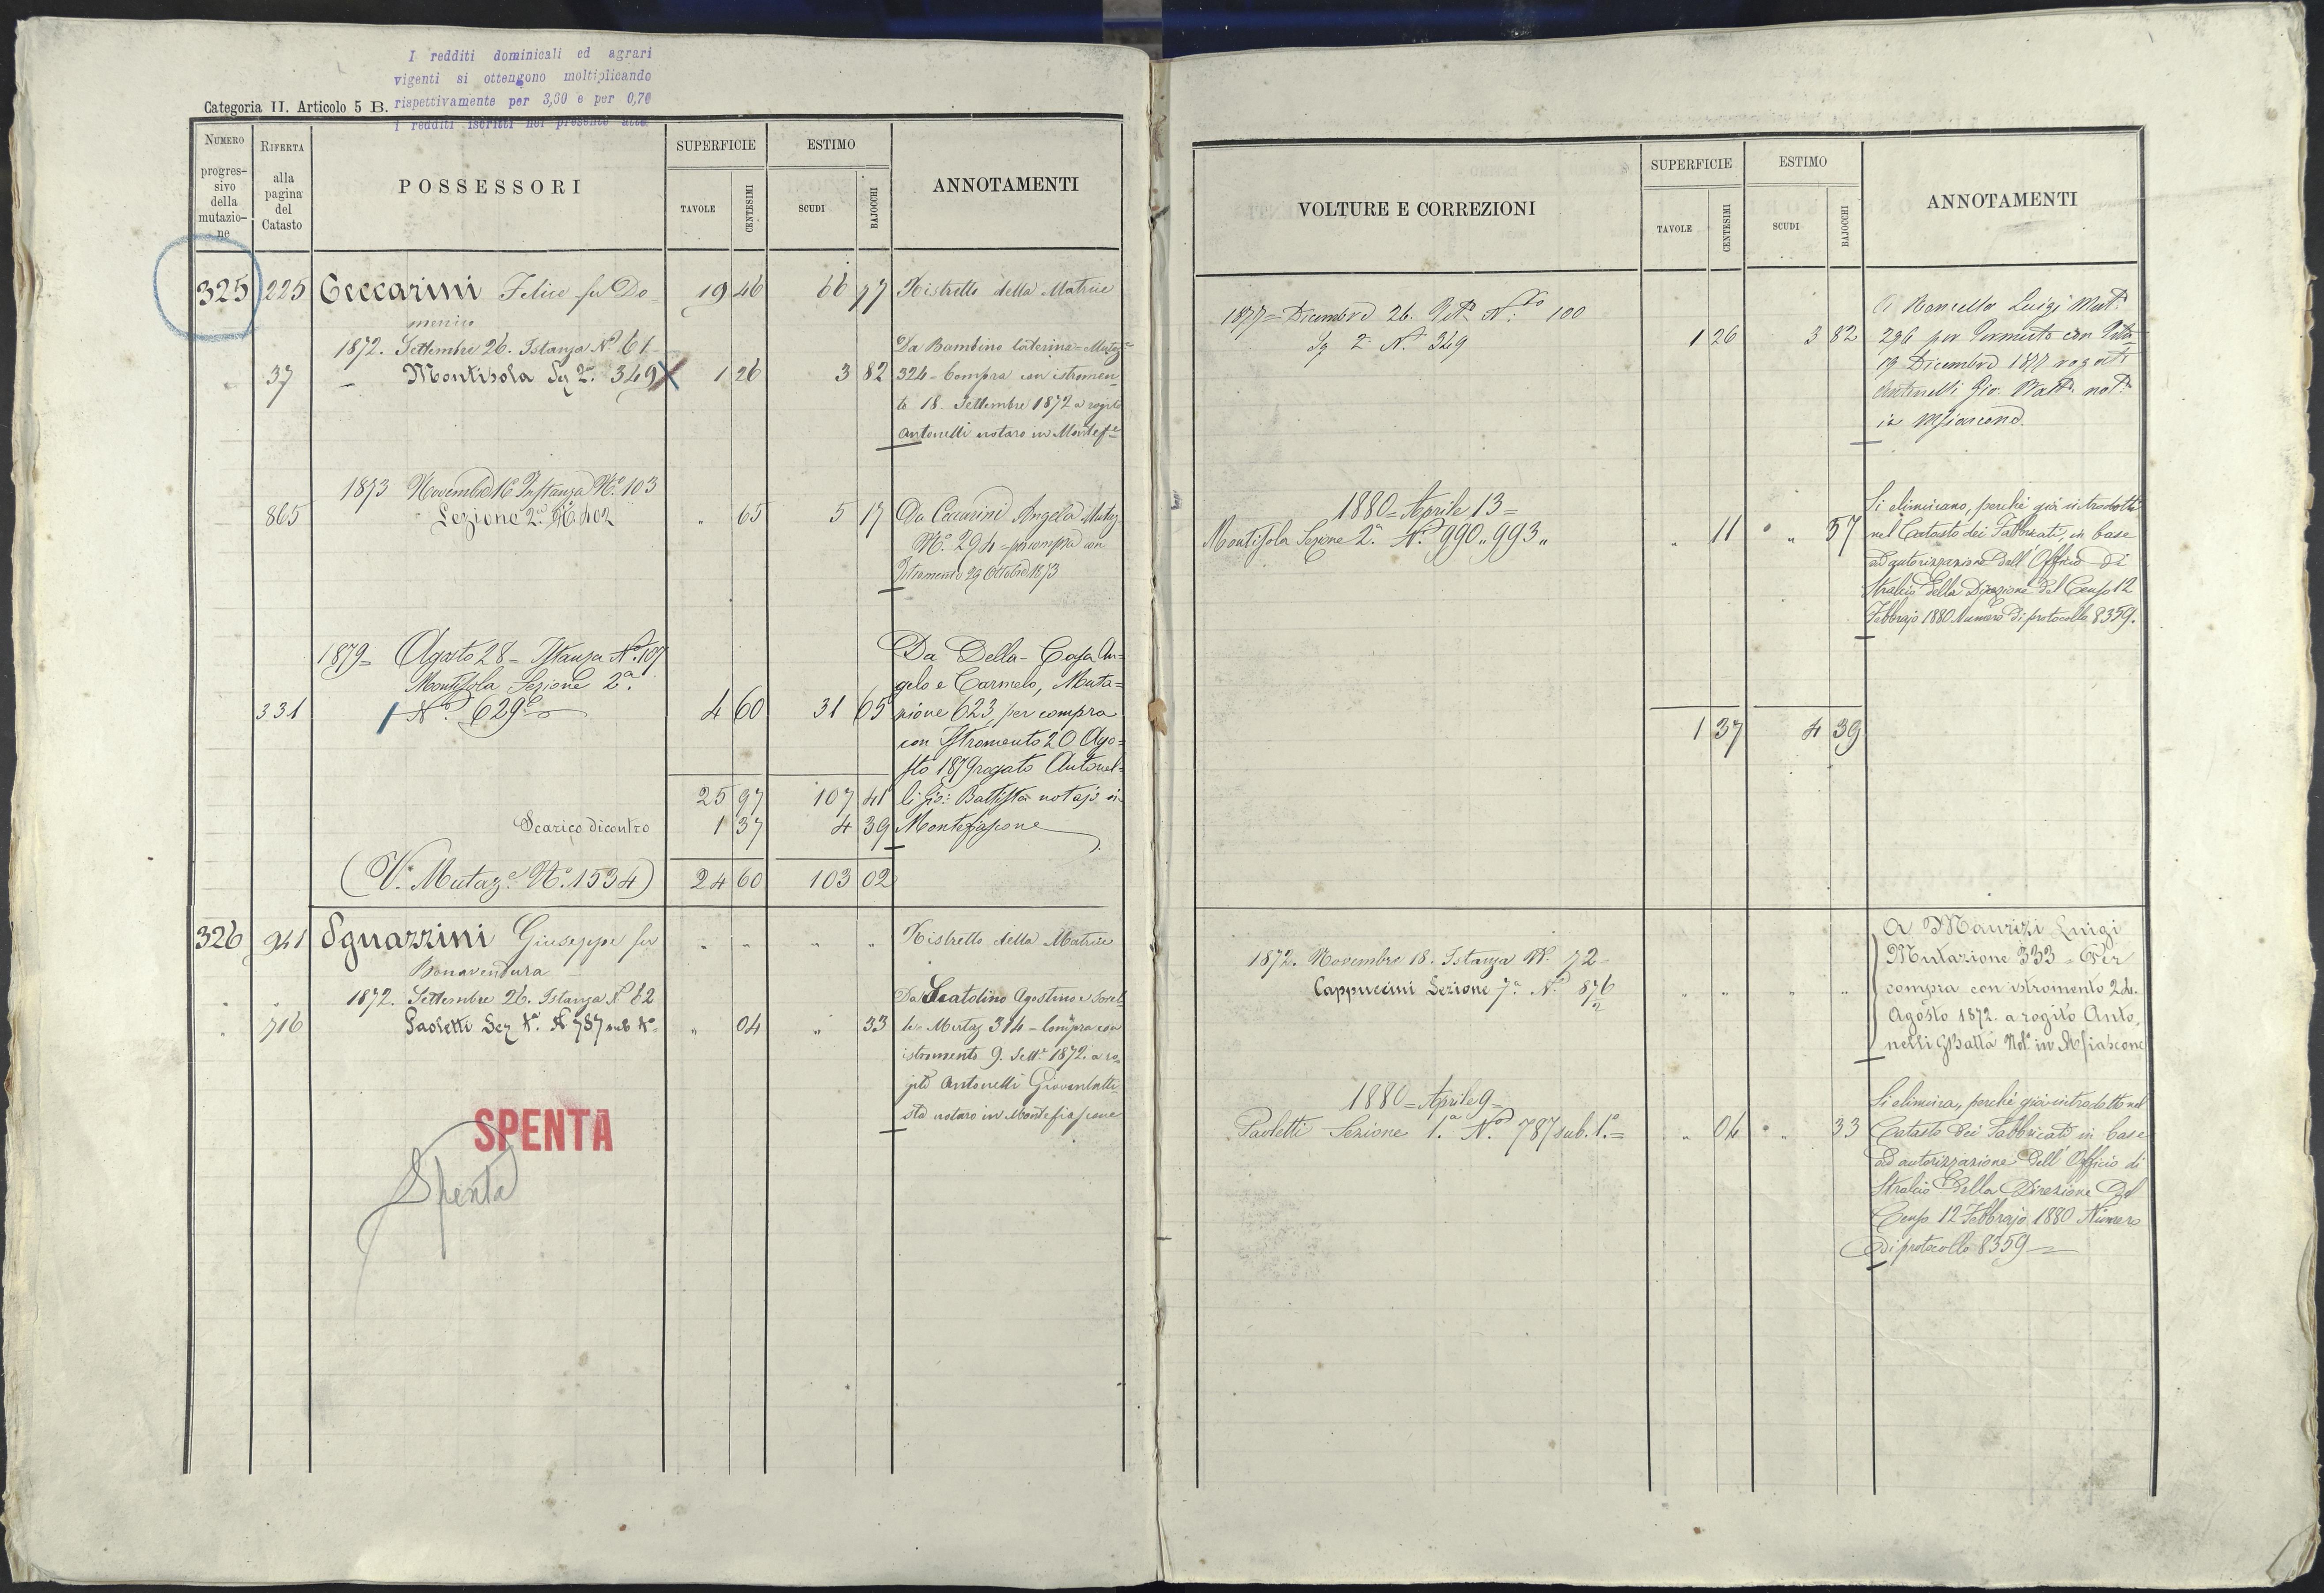 I redditi dominicali ed agrari
vigenti si ottengono moltiplicando
rispettivamente per 3,60 e per 0,70
i redditi iscritti nel presente atto
Categoria II. Articolo 5 B.
NUMERO progres-sivo della mutazio-ne
RIFERTA alla pagina del Catasto
POSSESSORI
SUPERFICIE
TAVOLE
CENTESIMI
ESTIMO
SCUDI
BAJOCCHI
ANNOTAMENTI
325 225 Ceccarini Felice fu Do- 19 46 66 77 Ristretto della Matrice
menico
1872. Settembre 26. Istanza N.º 61
Da Bambino Caterina = Mutaz.e
37 – Montisola Sez 2.a 349 X 1 26 3 82 324 - Compra con istromen-
to 18 Settembre 1872 a rogito
Antonelli notaro in Montef.e
1873 Novembre 16 Instanza N.º 103
865 Sezione 2.a N.º 402 " 65 5 17 Da Ceccarini Angela Mutaz.
N.º 294 = per compra con
Istromento 29 Ottobre 1873
1879 = Agosto 28 = Istanza N.º 107
Da Della-Casa An=
Montisola Sezione 2.a
gelo e Carmelo, Muta=
331 N.º 629 4 60 31 65 zione 623, per compra
con Istromento 20 Ago=
sto 1879 rogato Antonel=
25 97 107 41 li Gio: Battista notajo in
Scarico dicontro 1 37 4 39 Montefiascone
(V. Mutaz.e N.º 1534) 24 60 103 02
326 941 Sguazzini Giuseppe fu " " " " Ristretto della Matrice
Bonaventura
" " 1872. Settembre 26. Istanza N.º 62
Da Scatolino Agostino e Sorel-
" 716 Paoletti Sez 1.a N.º 787 sub 1.º " 04 " 33 le = Mutaz 314 - Compra con
istromento 9. Sett.e 1872. a ro-
gito Antonelli Giovanbatti-
sta notaro in Montefiascone
SPENTA
Spenta
VOLTURE E CORREZIONI
SUPERFICIE
TAVOLE
CENTESIMI
ESTIMO
SCUDI
BAJOCCHI
ANNOTAMENTI
1877 = Dicembre 26. N.º 100
Luigi Mut.e
Sz 2 N.º 349 1 26 3 82 296 per Permuta con
19 Dicembre 1877 rogato
Antonelli Gio. Batt.a not.
in Mfiascone.
1880 = Aprile 13 =
Si eliminano, perchè già introdotti
Montisola Sezione 2.a N.º 990 " 993 " " 11 " 57 nel Catasto dei Fabbricati, in base
ad autorizzazione dell'Officio di
Stralcio della Direzione del Censo 12
Febbrajo 1880 Numero di protocollo 8359.
1 37 4 39
A Maurizi Luigi
1872. Novembre 18. Istanza N.º 72 =
Mutazione 333 = Per
Cappuccini Sezione 7.a N.º 876/2 " " " " compra con istromento 24.
Agosto 1872. a rogito Anto-
nelli GBatta Not. in Mfiascone
1880 = Aprile 9 =
Si elimina, perchè già introdotto nel
Paoletti Sezione 1.a N.º 787 sub. 1.º = " 04 " 33 Catasto dei Fabbricati in base
ad autorizzazione dell'Officio di
Stralcio della Direzione del
Censo 12 Febbrajo 1880 Numero
di protocollo 8359